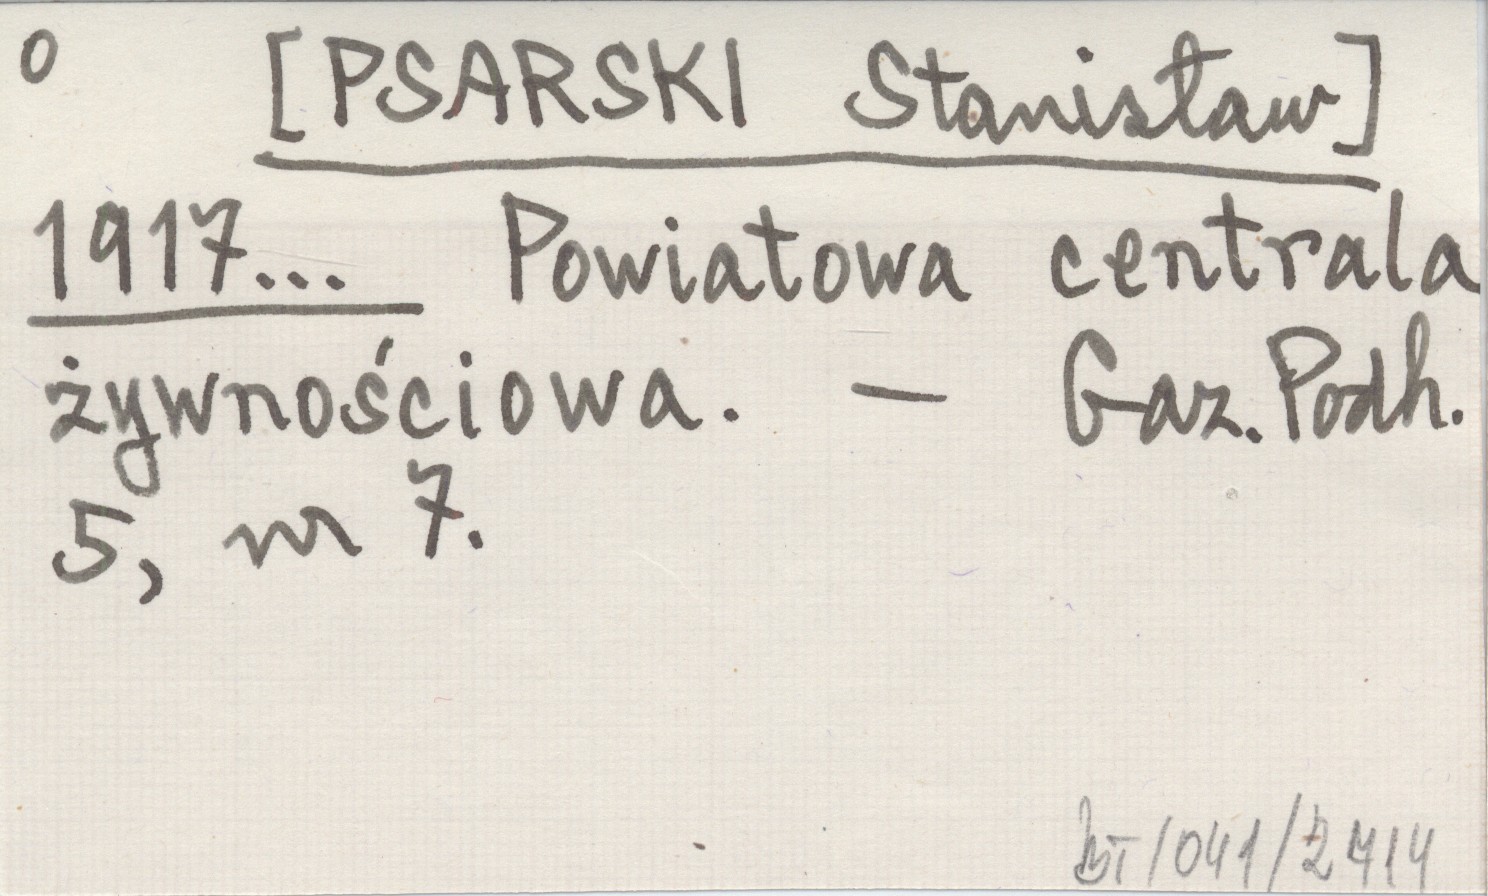 0 [PSARSKI Stanisław]
1917... Powiatowa centrala
żywnościowa. — Gaz. Podh.
5, nr 7.
/041/2414